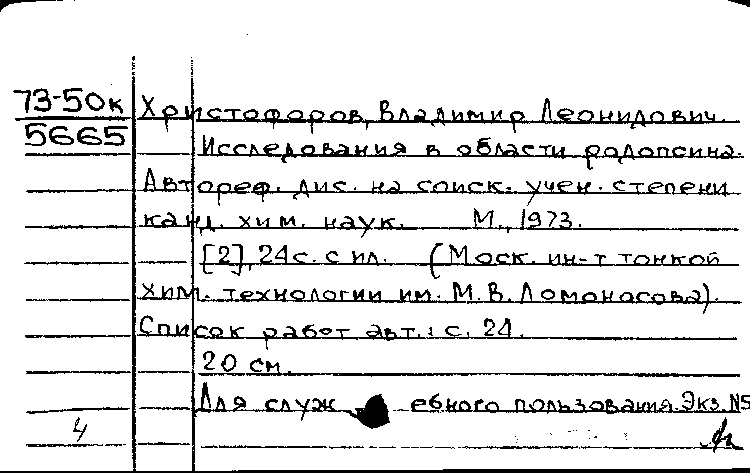 73-50к
5665
Христофоров, Владимир Леонидович.
Исследования в области родопсина.
Автореф. дис. на соиск. учен. степени
канд. хим. наук. М., 1973.
[2], 24 с. с ил. (Моск. ин-т тонкой
хим. технологии им. М.В. Ломоносова).
Список работ авт.: с. 24.
20 см.
Для служ ебного пользования. Экз. №5
4